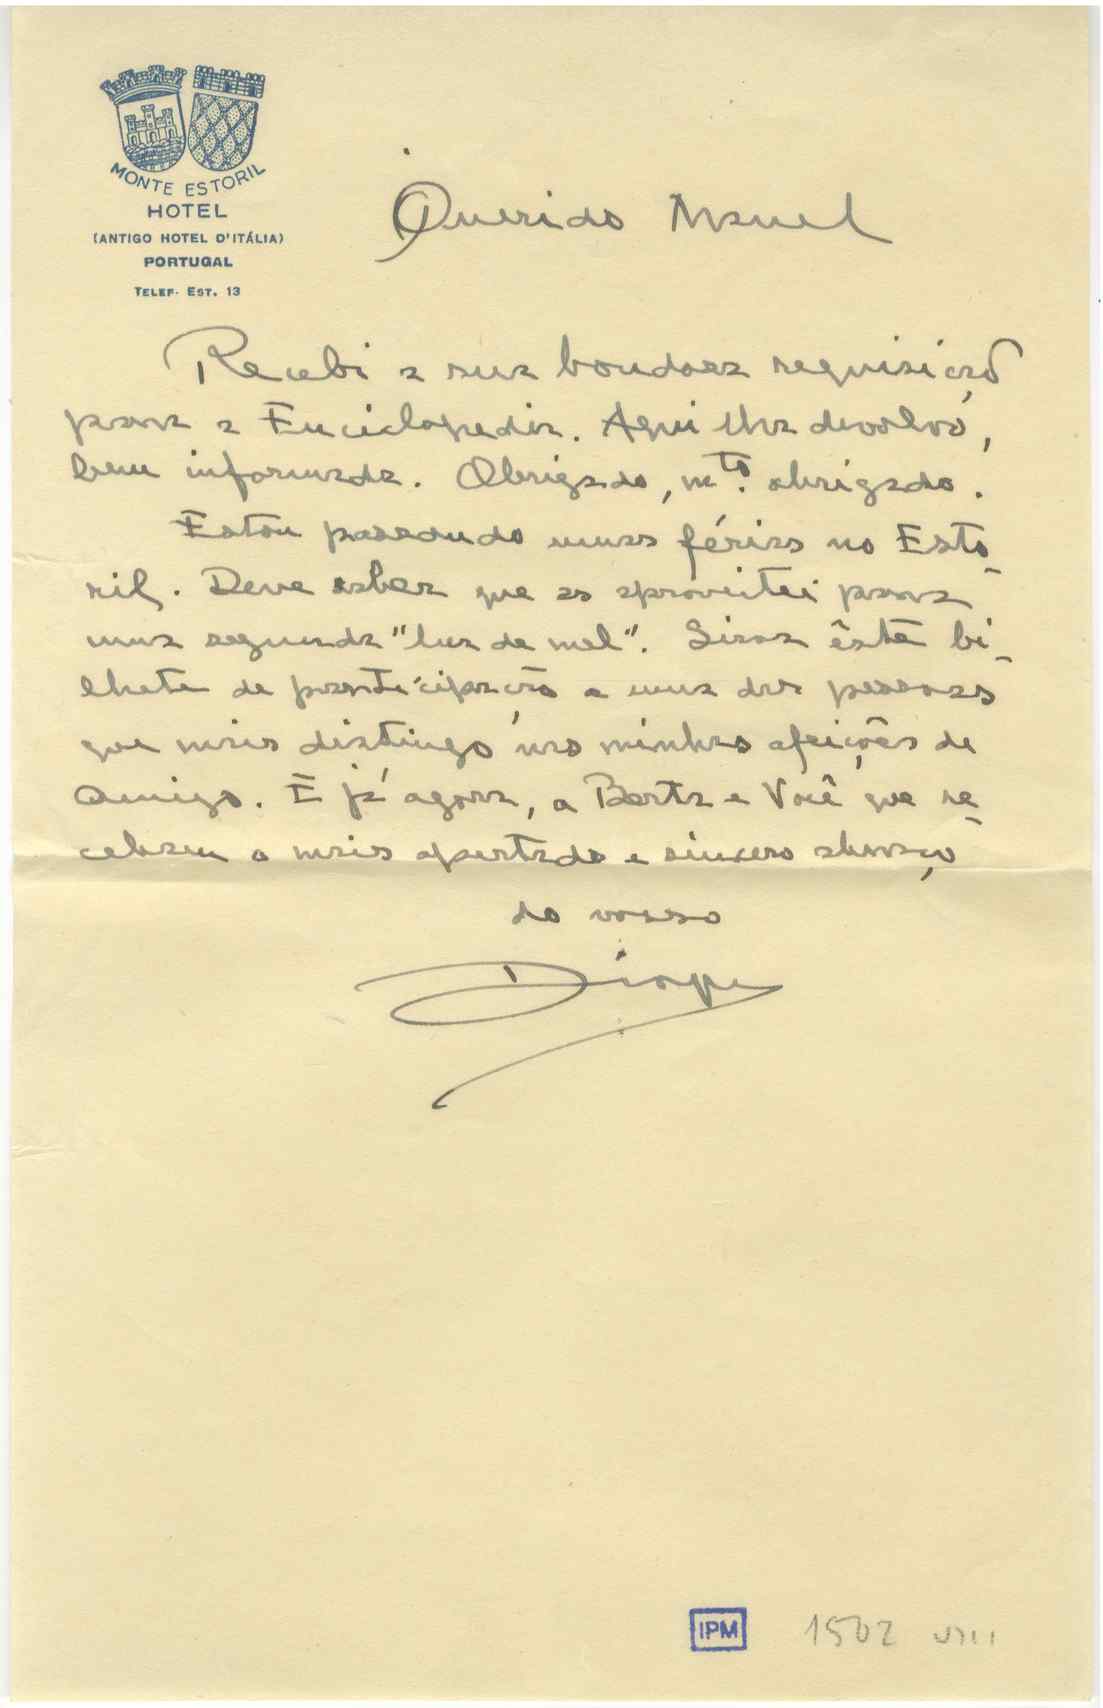 MONTE ESTORIL
HOTEL
(ANTIGO HOTEL D'ITÁLIA)
PORTUGAL
TELEF. EST. 13
Querido Manuel
Recebi a sua bondosa requisição
para a Enciclopedia. Aqui lha devolvo,
bem informada. Obrigado, mto. obrigado.
Estou passando umas férias no Esto-
ril. Deve saber que as aproveitei para
uma segunda "lua de mel". Sirva êste bi-
lhete de participação a uma das pessoas
que mais distingo nas minhas afeições de
amigo. E já agora, a Berta e Você que re-
cebam o mais apertado e sincero abraço
do vosso
IPM 1502 VIII